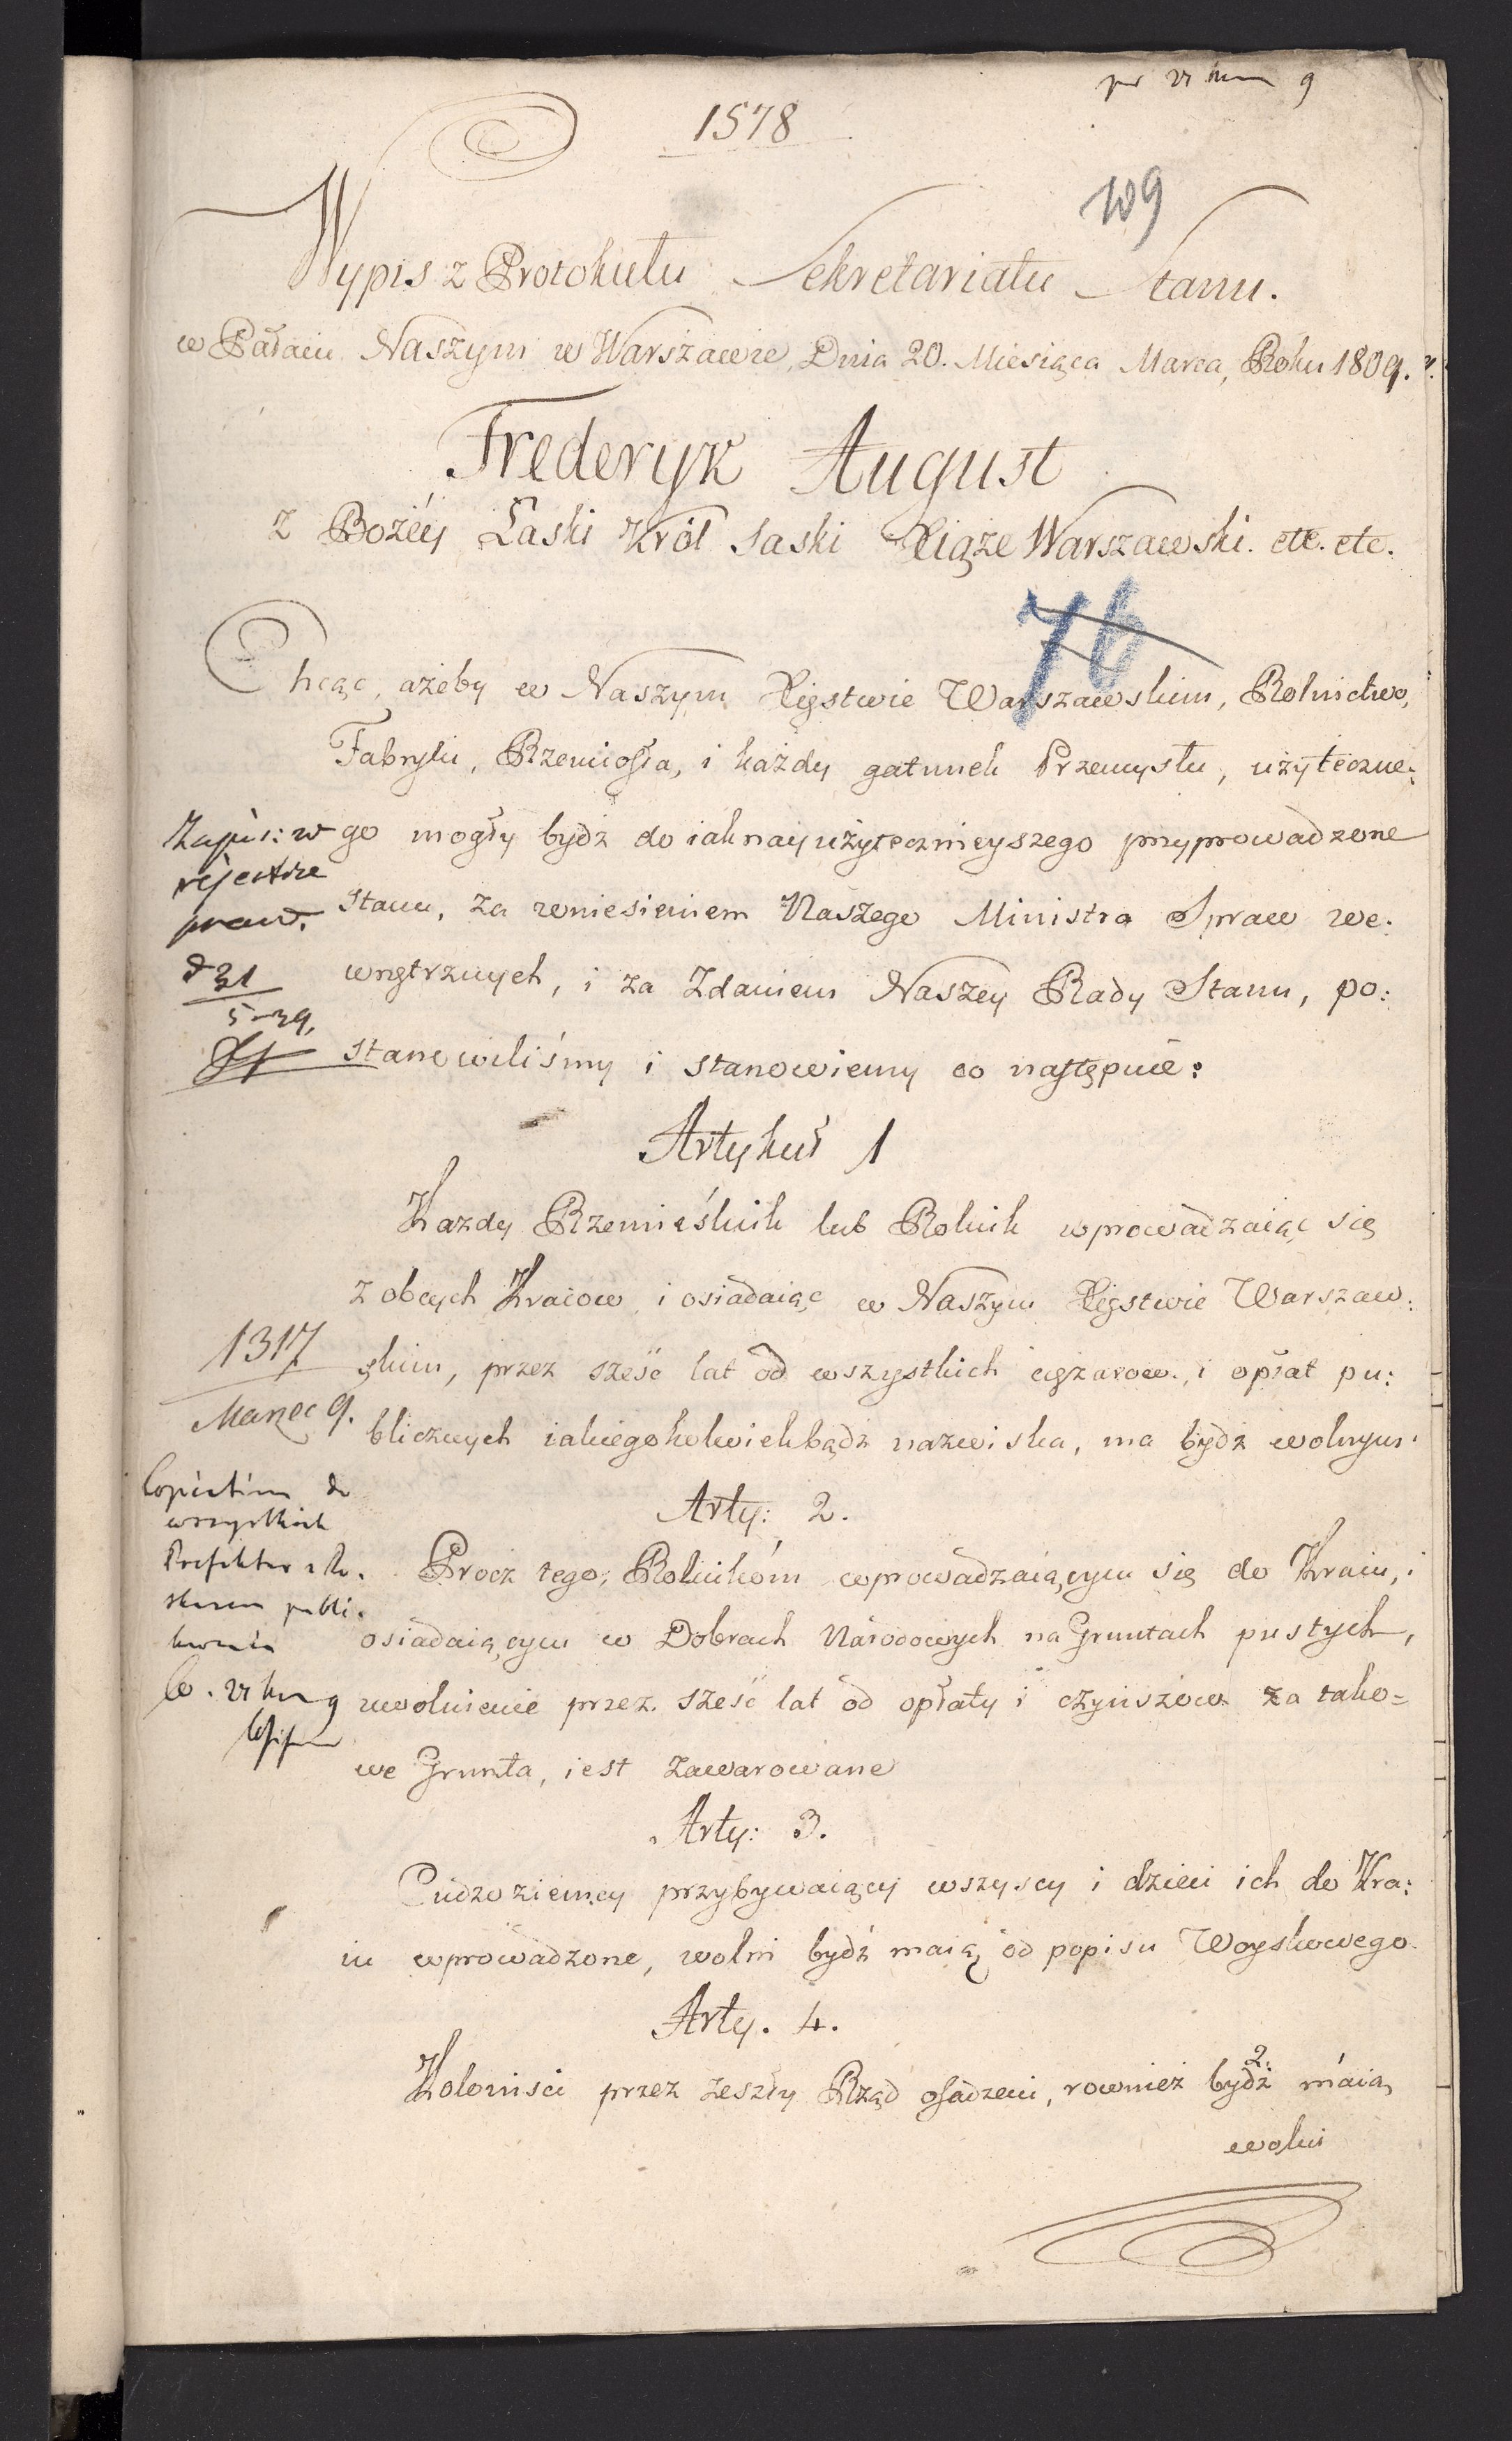 1578
109
Wypis z Protokułu Sekretariatu Stanu.
w Pałacu Naszym w Warszawie, Dnia 20. Miesiąca Marca, Roku 1809. r.
Frederyk August
z Bożéy Łaski Król Saski Xiąże Warszawski. etc. etc.
76
Chcąc, ażeby w Naszym Xięstwie Warszawskim, Rolnictwo,
Fabryki, Rzemiosła, i każdy gatunek Przemysłu, użyteczne:
go mogły bydź do iaknayużytecznieyszego przyprowadzone
Stanu, za wniesieniem Naszego Ministra Spraw we:
wnętrznych, i za Zdaniem Naszey Rady Stanu, po:
stanowiliśmy i stanowiemy co następuie:
Zapis: w
rejestrze
praw.
d 31
Artykuł 1
Każdy Rzemieślnik lub Rolnik wprowadzaiąc się
z obcych Kraiow i osiadaiąc w Naszym Xięstwie Warszaw:
skim, przez sześć lat od wszystkich ciężarow, i opłat pu:
blicznych iakiegokolwiekbądź nazwiska, ma bydź wolnym.
1317
Marzec 9.
Arty: 2.
Procz tego, Rolnikóm wprowadzaiącym się do Kraiu, i
osiadaiącym w Dobrach Narodowych na Gruntach pustych,
uwolnienie przez sześć lat od opłaty i czynszow za tako=
we Grunta, iest zawarowane
do
wszystkich
Prefektow
Arty: 3.
Cudzoziemcy przybywaiący wszyscy i dzieci ich do Kra:
iu wprowadzone, wolni bydź maią od popisu Woyskowego
Arty. 4.
Koloniści przez zeszły Rząd osadzeni, rownież bydź maią
2.
wolni